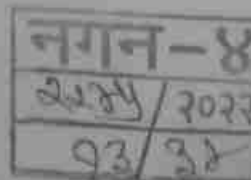 नगन-४
२२७५/२०२२
१३/३२